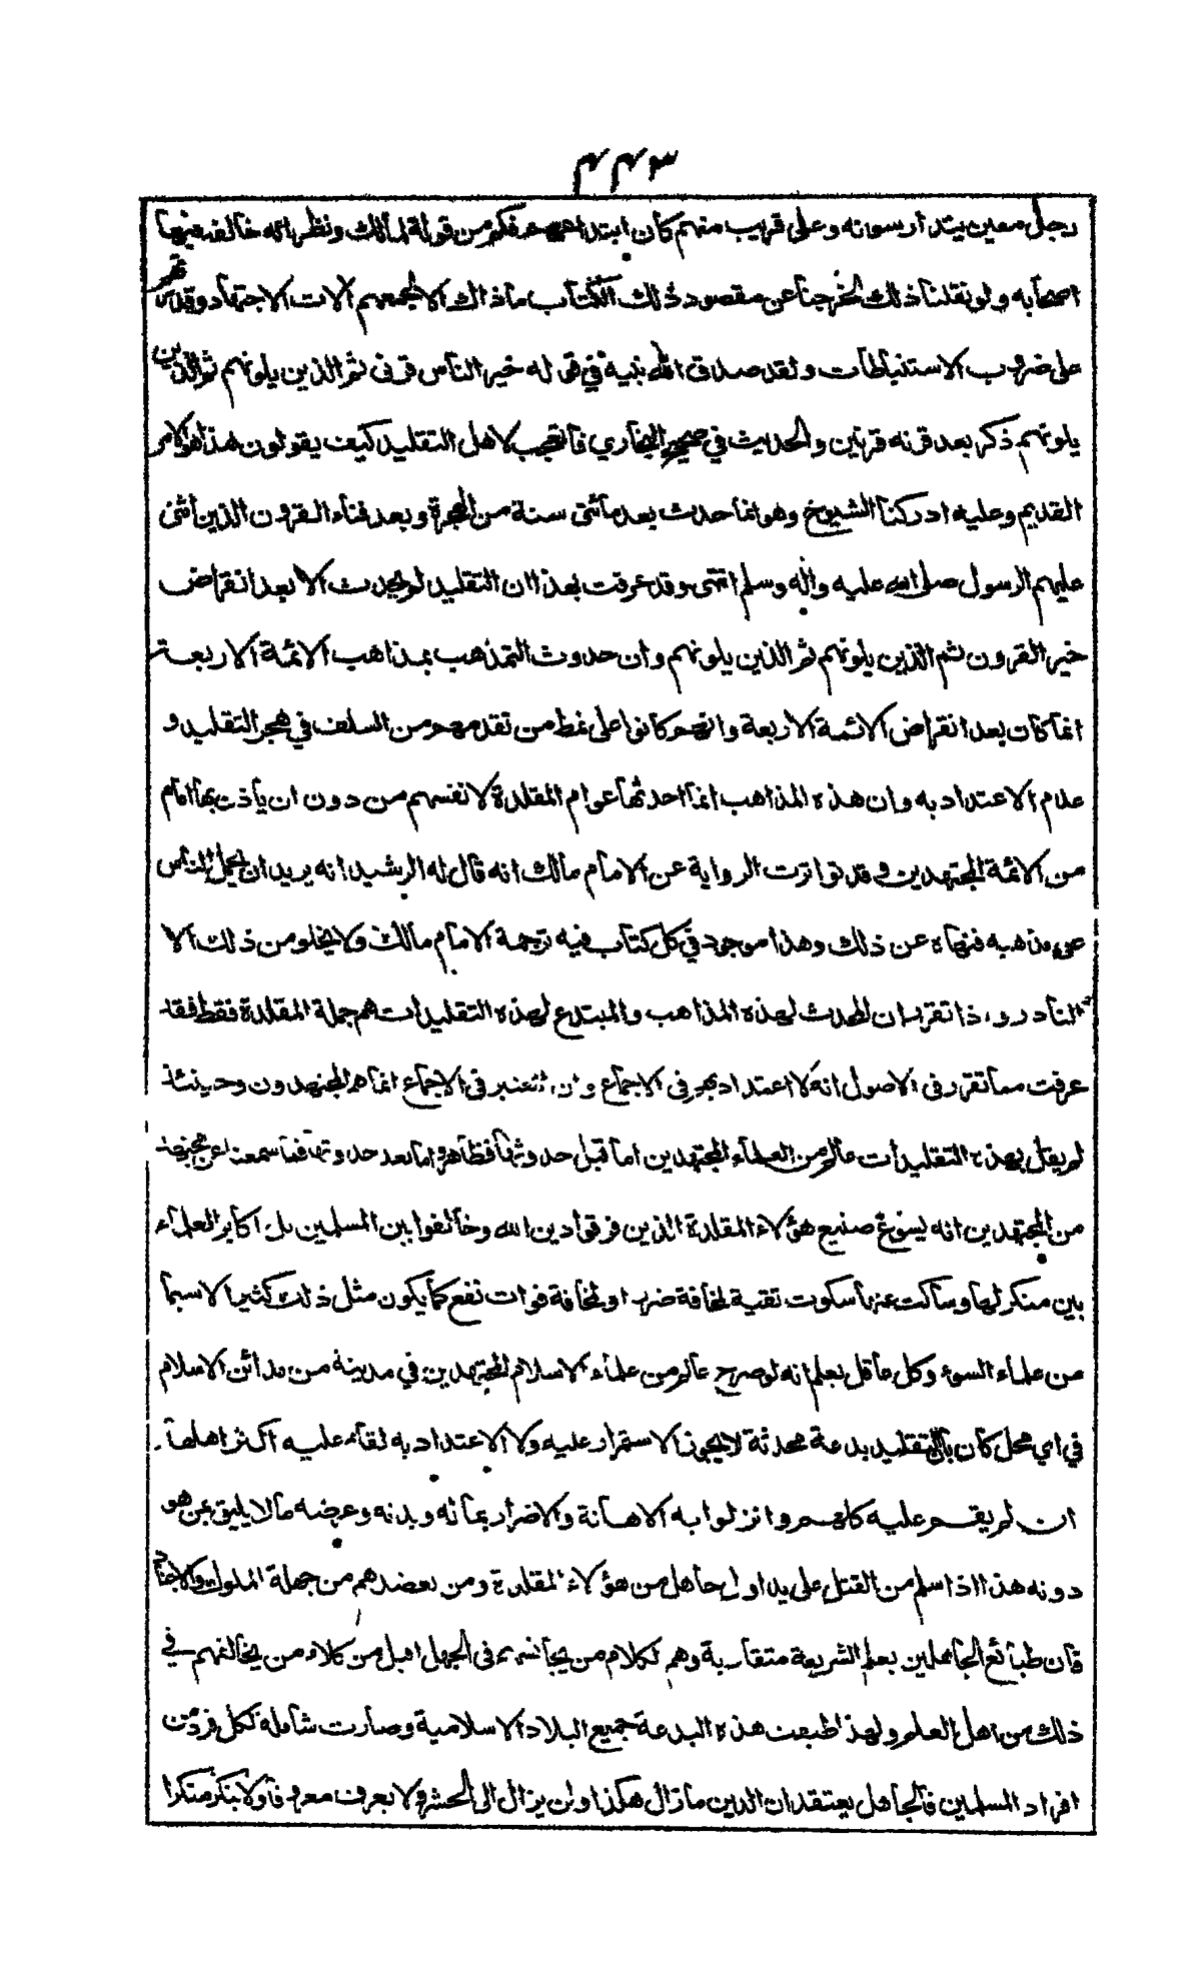 ٤٤٣
رجل معين يتدارسونه وعلى قريب منهم كان ابتداعهم فكم من قولة لمالك ونظرائه خالفه فيها
اصحابه ولو نقلنا ذلك لخرجنا عن مقصود ذلك الكتاب ما ذاك الا لجمعهم آلات الاجتهاد وقدرتهم
على ضروب الاستنباطات ولقد صدق الله نبيه في قوله خير الناس قرنى ثم الذين يلونهم ثم الذين
يلونهم ذكر بعد قرنه قرنين والحديث في صحيح البخاري فالعجب لاهل التقليد كيف يقولون هذا هو الامر
القديم وعليه ادركنا الشيوخ وهو انما حدث بعد مأتى سنة من الهجرة وبعد فناء القرون الذين أثنى
عليهم الرسول صلى الله عليه واله وسلم انتهى وقد عرفت بهذا ان التقليد لم يحدث الا بعد انقراض
خير القرون ثم الذين يلونهم ثم الذين يلونهم وان حدوث التمذهب بمذاهب الائمة الاربعة
انما كان بعد انقراض الائمة الاربعة وانهم كانوا على نمط من تقدمهم من السلف في هجر التقليد و
عدم الاعتداد به وان هذه المذاهب انما احدثها عوام المقلدة لانفسهم من دون ان يأذن بها امام
من الائمة المجتهدين وقد تواترت الرواية عن الامام مالك انه قال له الرشيد انه يريد ان يحمل الناس
على مذهبه فنهاه عن ذلك وهذا موجود في كل كتاب فيه ترجمة الامام مالك ولا يخلو من ذلك الا
النادر واذا تقرر ان المحدث لهذه المذاهب والمبتدع لهذه التقليدات هم جملة المقلدة فقط فقد
عرفت مما تقرر فى الاصول انه لا اعتداد بهم فى الاجماع وان المعتبر فى الاجماع انما هم المجتهدون وحينئذ
لم يقل بهذه التقليدات عالم من العلماء المجتهدين اما قبل حدوثها فظاهر واما بعد حدوثها فما سمعنا عن مجتهد
من المجتهدين انه يسوغ صنيع هؤلاء المقلدة الذين فرقوا دين الله وخالفوا بين المسلمين بل اكابر العلماء
بين منكر لها وساكت عنها سكوت تقية لمخافة ضرر او لمخافة فوات نفع كما يكون مثل ذلك كثيرا لا سيما
من علماء السوء وكل عاقل يعلم انه لو صرح عالم من علماء الاسلام المجتهدين في مدينة من مدائن الاسلام
في اي محل كان بأن التقليد بدعة محدثة لا يجوز الاستمرار عليه ولا الاعتداد به لقام عليه اكثر اهلها
ان لم يقم عليه كلهم وانزلوا به الاهانة والاضرار بماله وبدنه وعرضه ما لا يليق بمن هو
دونه هذا اذا سلم من القتل على يد اول جاهل من هؤلاء المقلدة ومن يعضدهم من جهلة الملوك والاجناد
فان طبائع الجاهلين بعلم الشريعة متقاربة وهم لكلام من يجانسهم فى الجهل اقبل من كلام من يخالفهم في
ذلك من اهل العلم ولهذا طبقت هذه البدعة جميع البلاد الاسلامية وصارت شاملة لكل فرد من
افراد المسلمين فالجاهل يعتقد ان الدين ما زال هكذا ولن يزال الى الحشر ولا يعرف معروفا ولا ينكر منكرا